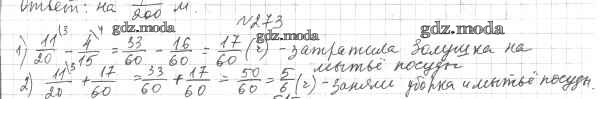 Ответ: на 1/200 м.
№273
gdz.moda gdz.moda gdz.moda
1) 11/20 \3 - 4/15 \4 = 33/60 - 16/60 = 17/60 (г) - затратила Золушка на
мытьё посуды
2) 11/20 \3 + 17/60 = 33/60 + 17/60 = 50/60 = 5/6 (г) - заняли уборка и мытьё посуды.
gdz.moda gdz.moda